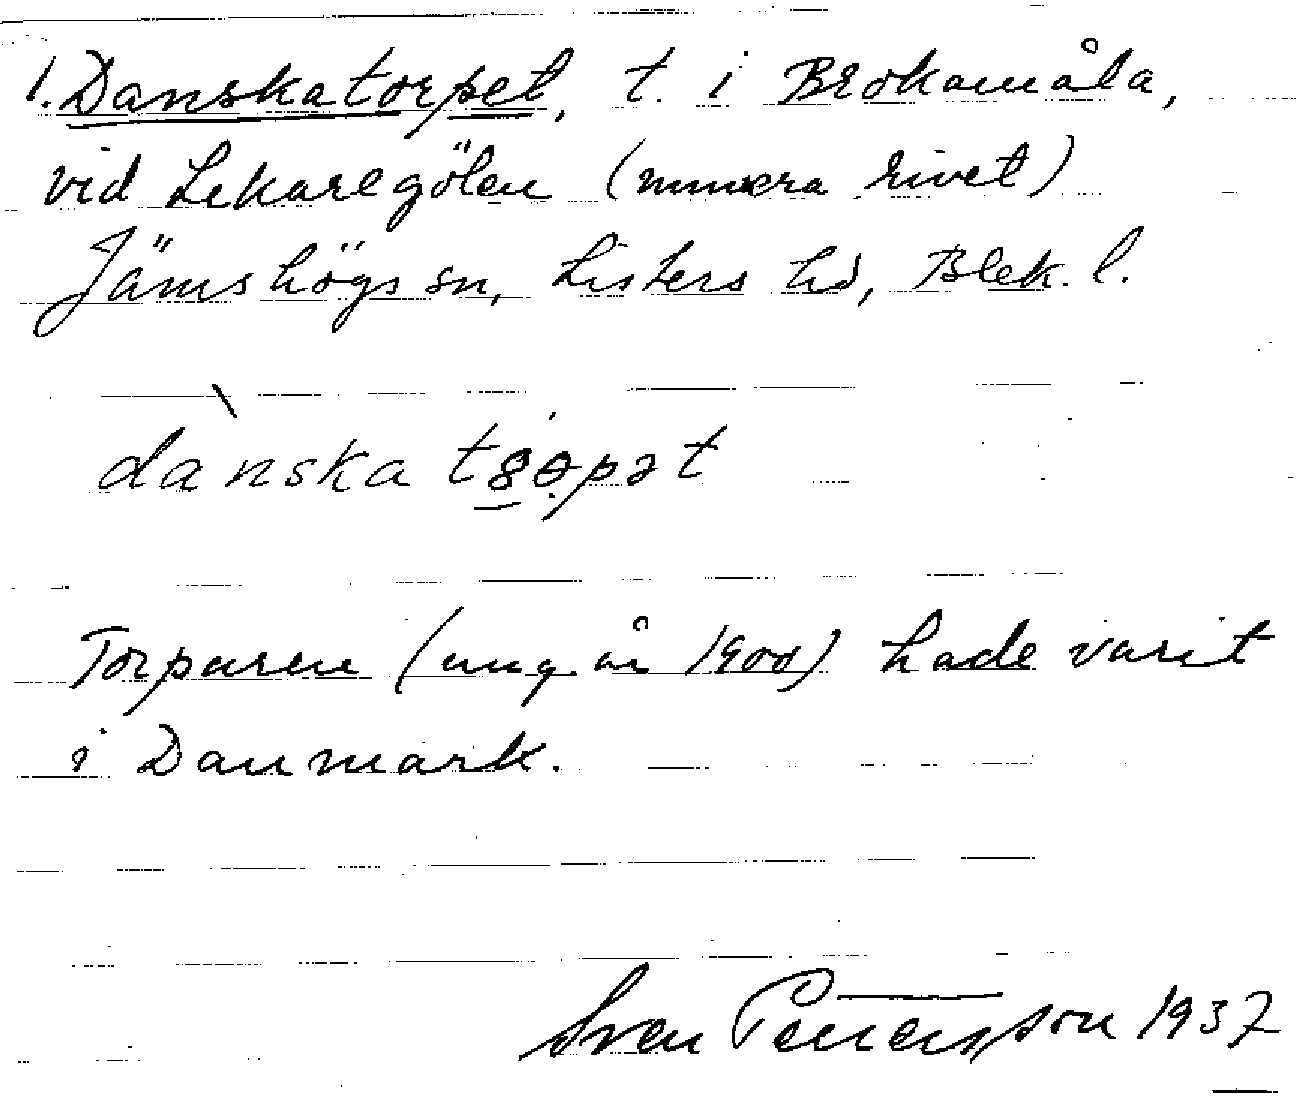 1. Danskatorpet, t. i Brokamåla,
vid Lekaregölen (numera rivet)
Jämshögs sn, Listers hd, Blek. l.
dànska
Torparen (ung. år 1900) hade varit
i Danmark.
Sven Pettersson 1937